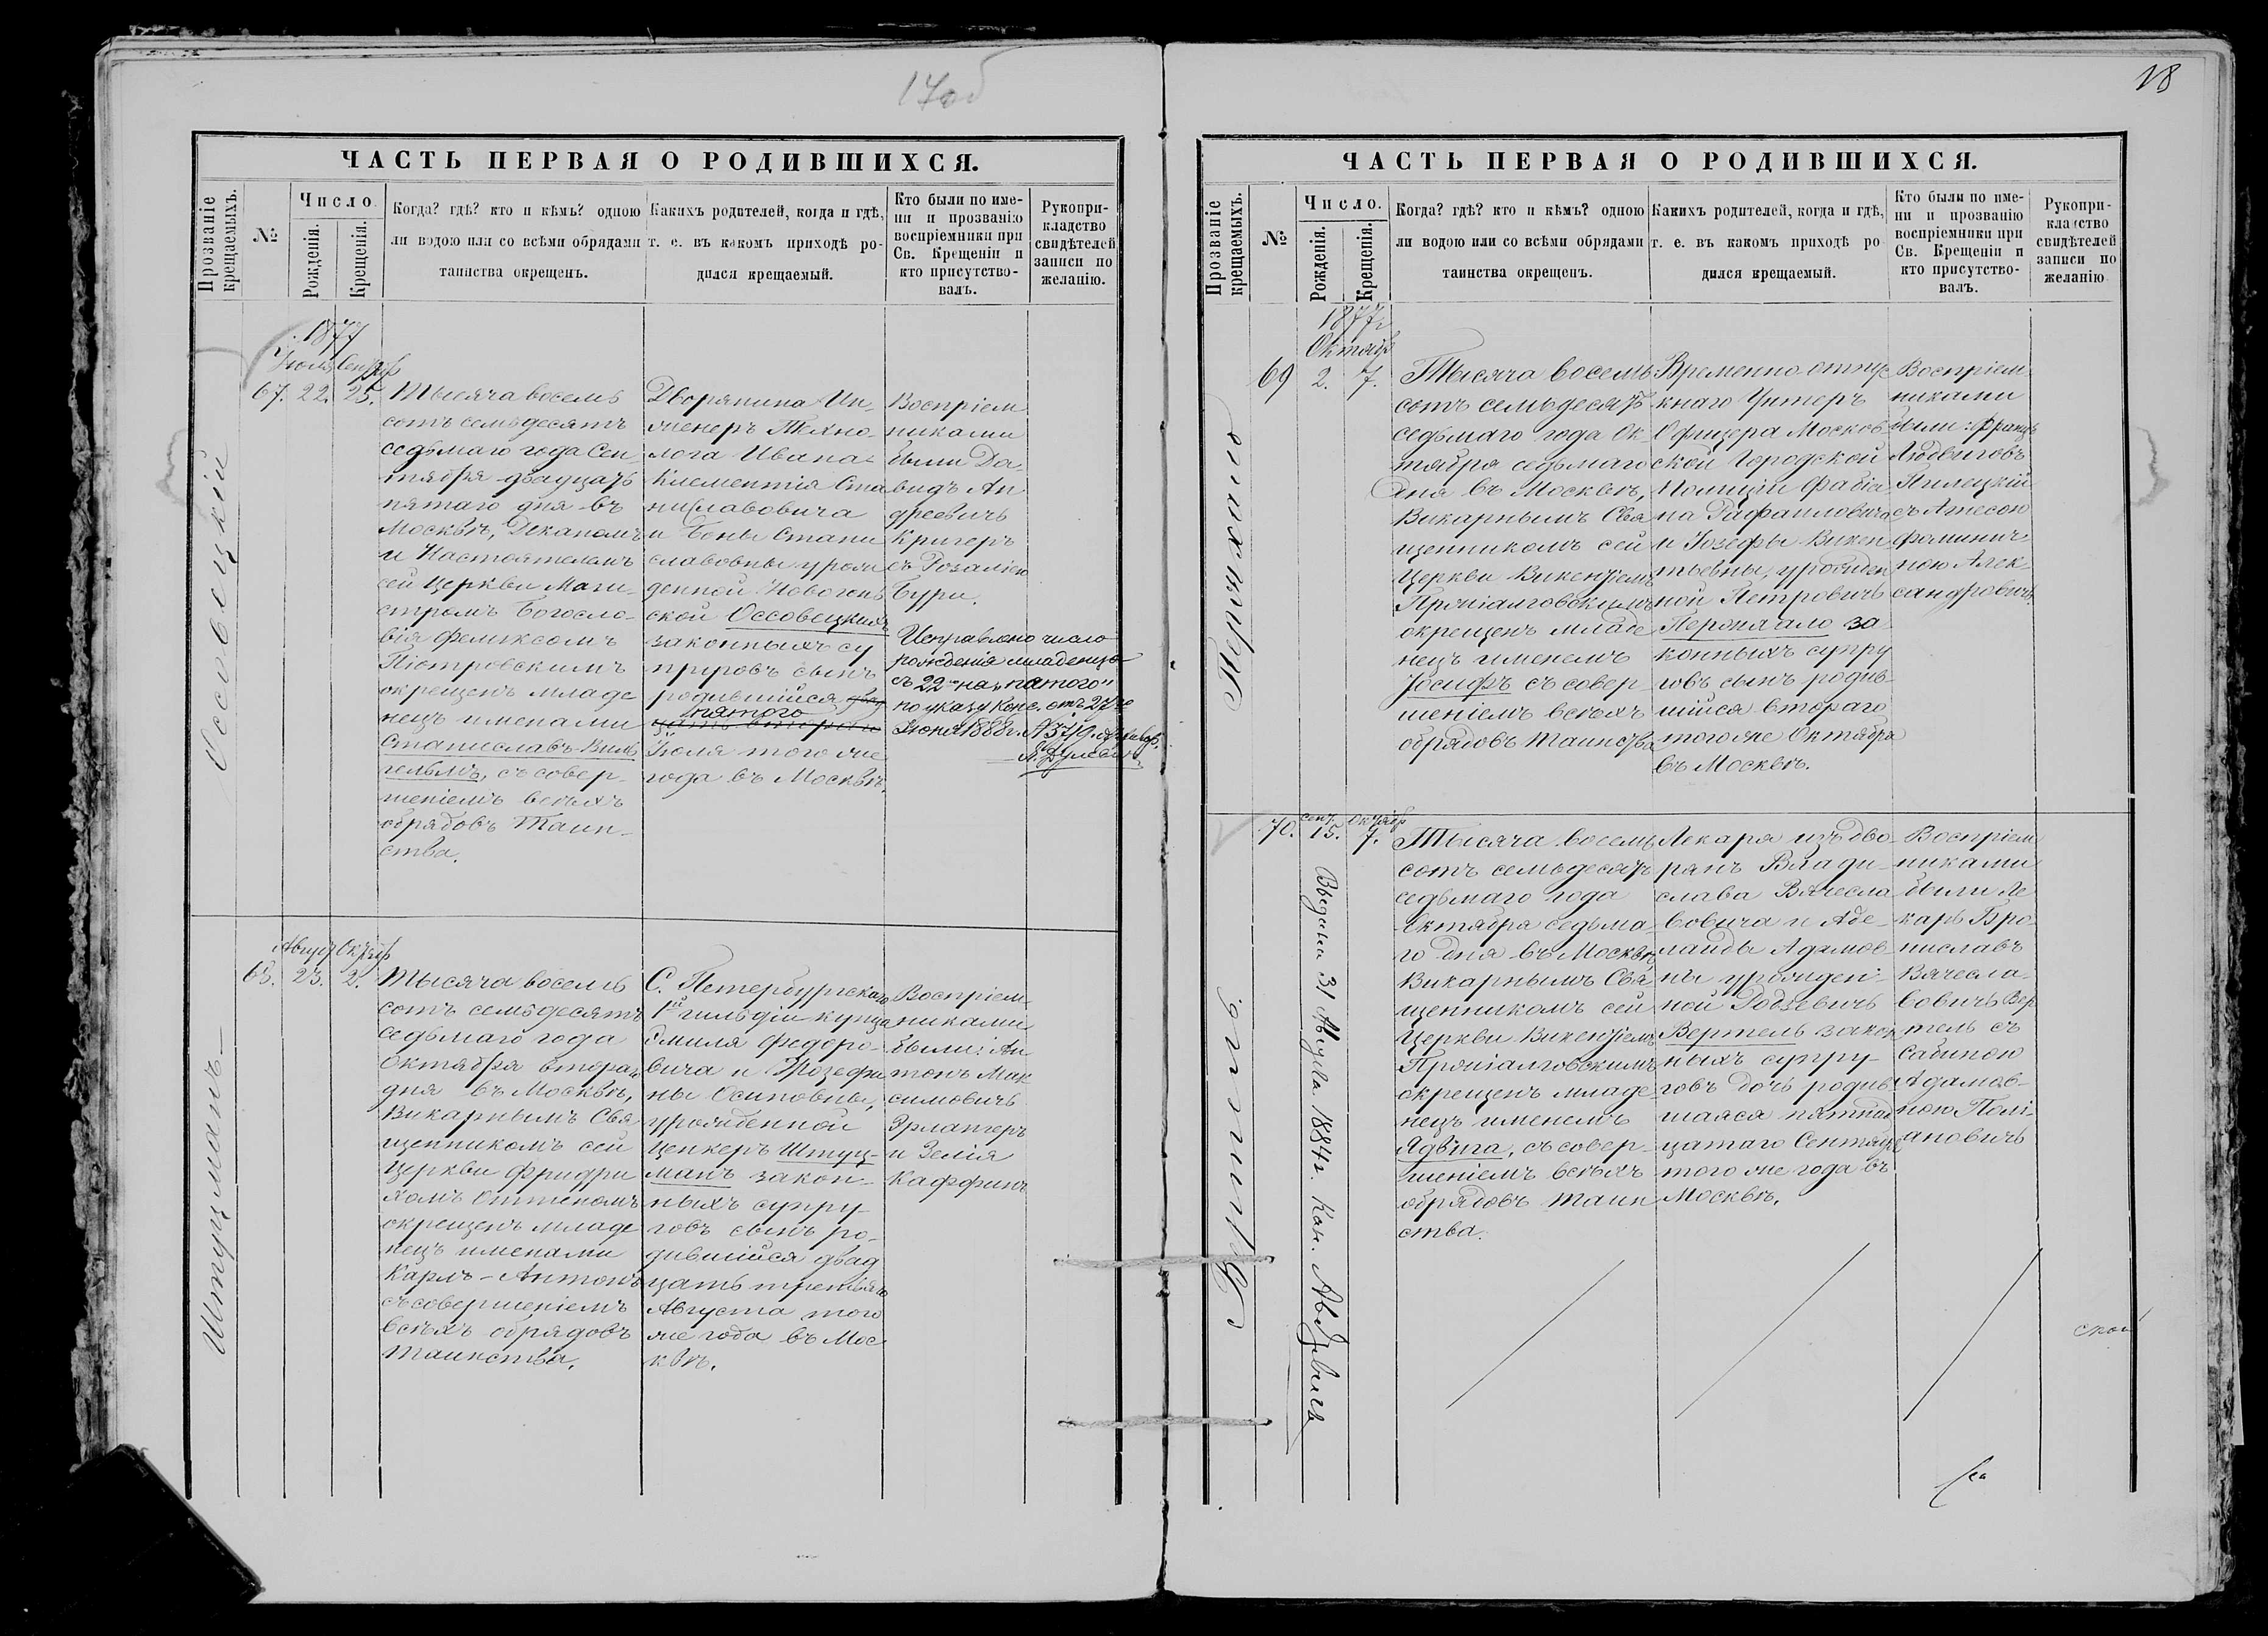 17об
ЧАСТЬ ПЕРВАЯ О РОДИВШИХСЯ.
Прозваніе крещаемыхъ.
№
Число.
Рожденія.
Крещенія.
Когда? гдѣ? кто и кѣмъ? одною
ли водою или со всѣми обрядами
таинства окрещенъ.
Какихъ родителей, когда и гдѣ,
т. е. въ какомъ приходѣ ро-
дился крещаемый.
Кто были по име-
ни и прозванію
воспріемники при
Св. Крещеніи и
кто присутство-
валъ.
Рукопри-
кладство
свидѣтелей
записи по
желанію.
Оссовецкій
1877
Іюля Сентяб
67. 22. 25.
Тысяча восемь
сотъ семьдесятъ
седьмаго года Сен-
тября двадцать
пятаго дня въ
Москвѣ, Деканомъ
и Настоятелемъ
сей Церкви Маги-
стромъ Богосло-
вія Феликсомъ
Піотровскимъ
окрещенъ младе
нецъ именами
Станиславъ-Виль
гельмъ, съ совер-
шеніемъ всѣхъ
обрядовъ Таин-
ства.
Дворянина Ин-
женеръ Техно-
лога Ивана-
Климентія Ста
ниславовича
и Боны Стани
славовны урож
денной Новогон
ской Оссовецкихъ
законныхъ су
пруговъ сынъ
родившійся двад
пятого
цать втораго
Іюля того же
года въ Москвѣ.
Воспріем
никами
были Да-
видъ Ан
дреевичъ
Кригеръ
съ Розаліею
Бури.
Исправлено число
рожденія младенца
съ 22 на „пятого"
по указу Конс. отъ 27го
Іюня 1888г. №
Штуцманъ
Август Октяб
68. 23. 2.
Тысяча восемь
сотъ семьдесятъ
седьмаго года
Октября втораго
дня въ Москвѣ,
Викарнымъ Свя
щенникомъ сей
Церкви Фридри
хомъ Оттеномъ
окрещенъ младе
нецъ именами
Карлъ-Антонъ
съ совершеніемъ
всѣхъ обрядовъ
Таинства.
С. Петербургскаго
1й гильдіи купца
Эмиля Федоро-
вича и Жозефи
ны Осиповны,
урожденной
Ценкеръ Штуц-
манъ закон-
ныхъ супру
говъ сынъ ро-
дившійся двад
цать третьяго
Августа того
же года въ Мос
квѣ.
Воспріем-
никами
были: Ан
тонъ Мак
симовичъ
Эрлангеръ
и Зелія
Каффинъ
18
ЧАСТЬ ПЕРВАЯ О РОДИВШИХСЯ.
Прозваніе крещаемыхъ.
№
Число.
Рожденія.
Крещенія.
Когда? гдѣ? кто и кѣмъ? одною
ли водою или со всѣми обрядами
таинства окрещенъ.
Какихъ родителей, когда и гдѣ,
т. е. въ какомъ приходѣ ро
дился крещаемый.
Кто были по име-
ни и прозванію
воспріемники при
Св. Крещеніи и
кто присутство-
валъ.
Рукопри-
кладство
свидѣтелей
записи по
желанію
1877г
Октябр
69 2. 7.
Тысяча восемь
сотъ семьдесятъ
седьмаго года Ок-
тября седьмаго
дня въ Москвѣ,
Викарнымъ Свя
щенникомъ сей
Церкви Викентіемъ
окрещенъ младе
нецъ именемъ
Іосифъ съ совер-
шеніемъ всѣхъ
обрядовъ таинства
Временно-отпус
кнаго Унтеръ
Офицера Москов-
ской Городской
Полиціи Фабіа
на Рафаиловича
и Іозефы Викен
тьевны, урожден
ной Петровичъ
за
конныхъ супру
говъ сынъ родив-
шійся втораго
того же Октября
въ Москвѣ.
Воспріем
никами
были: Францъ
Людвиговъ
Пилецкій
съ Агнесою
Фоминич-
ною Алек-
сандровичъ.
Вертель
70. Сент. 15. Октябр 7.
Выданы 31 Авгус. 1884г.
Тысяча восемь
сотъ семьдесятъ
седьмаго года
Октября седьма-
го дня въ Москвѣ
Викарнымъ Свя
щенникомъ сей
Церкви Викентіемъ
окрещенъ младе-
нецъ именемъ
Ядвига, съ совер-
шеніемъ всѣхъ
обрядовъ таин
ства.
Лекаря изъ дво-
рянъ Влади-
слава Вячесла
вовича и Аде-
лаиды Адамов
ны урожден-
ной Годзевичъ
Вертель закон
ныхъ супру-
говъ дочь родив
шаяся пятнад
цатаго Сентября
того же года въ
Москвѣ.
Воспріем
никами
были Ле
карь Бро-
ниславъ
Вячесла
вовичъ Вер
тель съ
Сабиною
Адамов-
ною